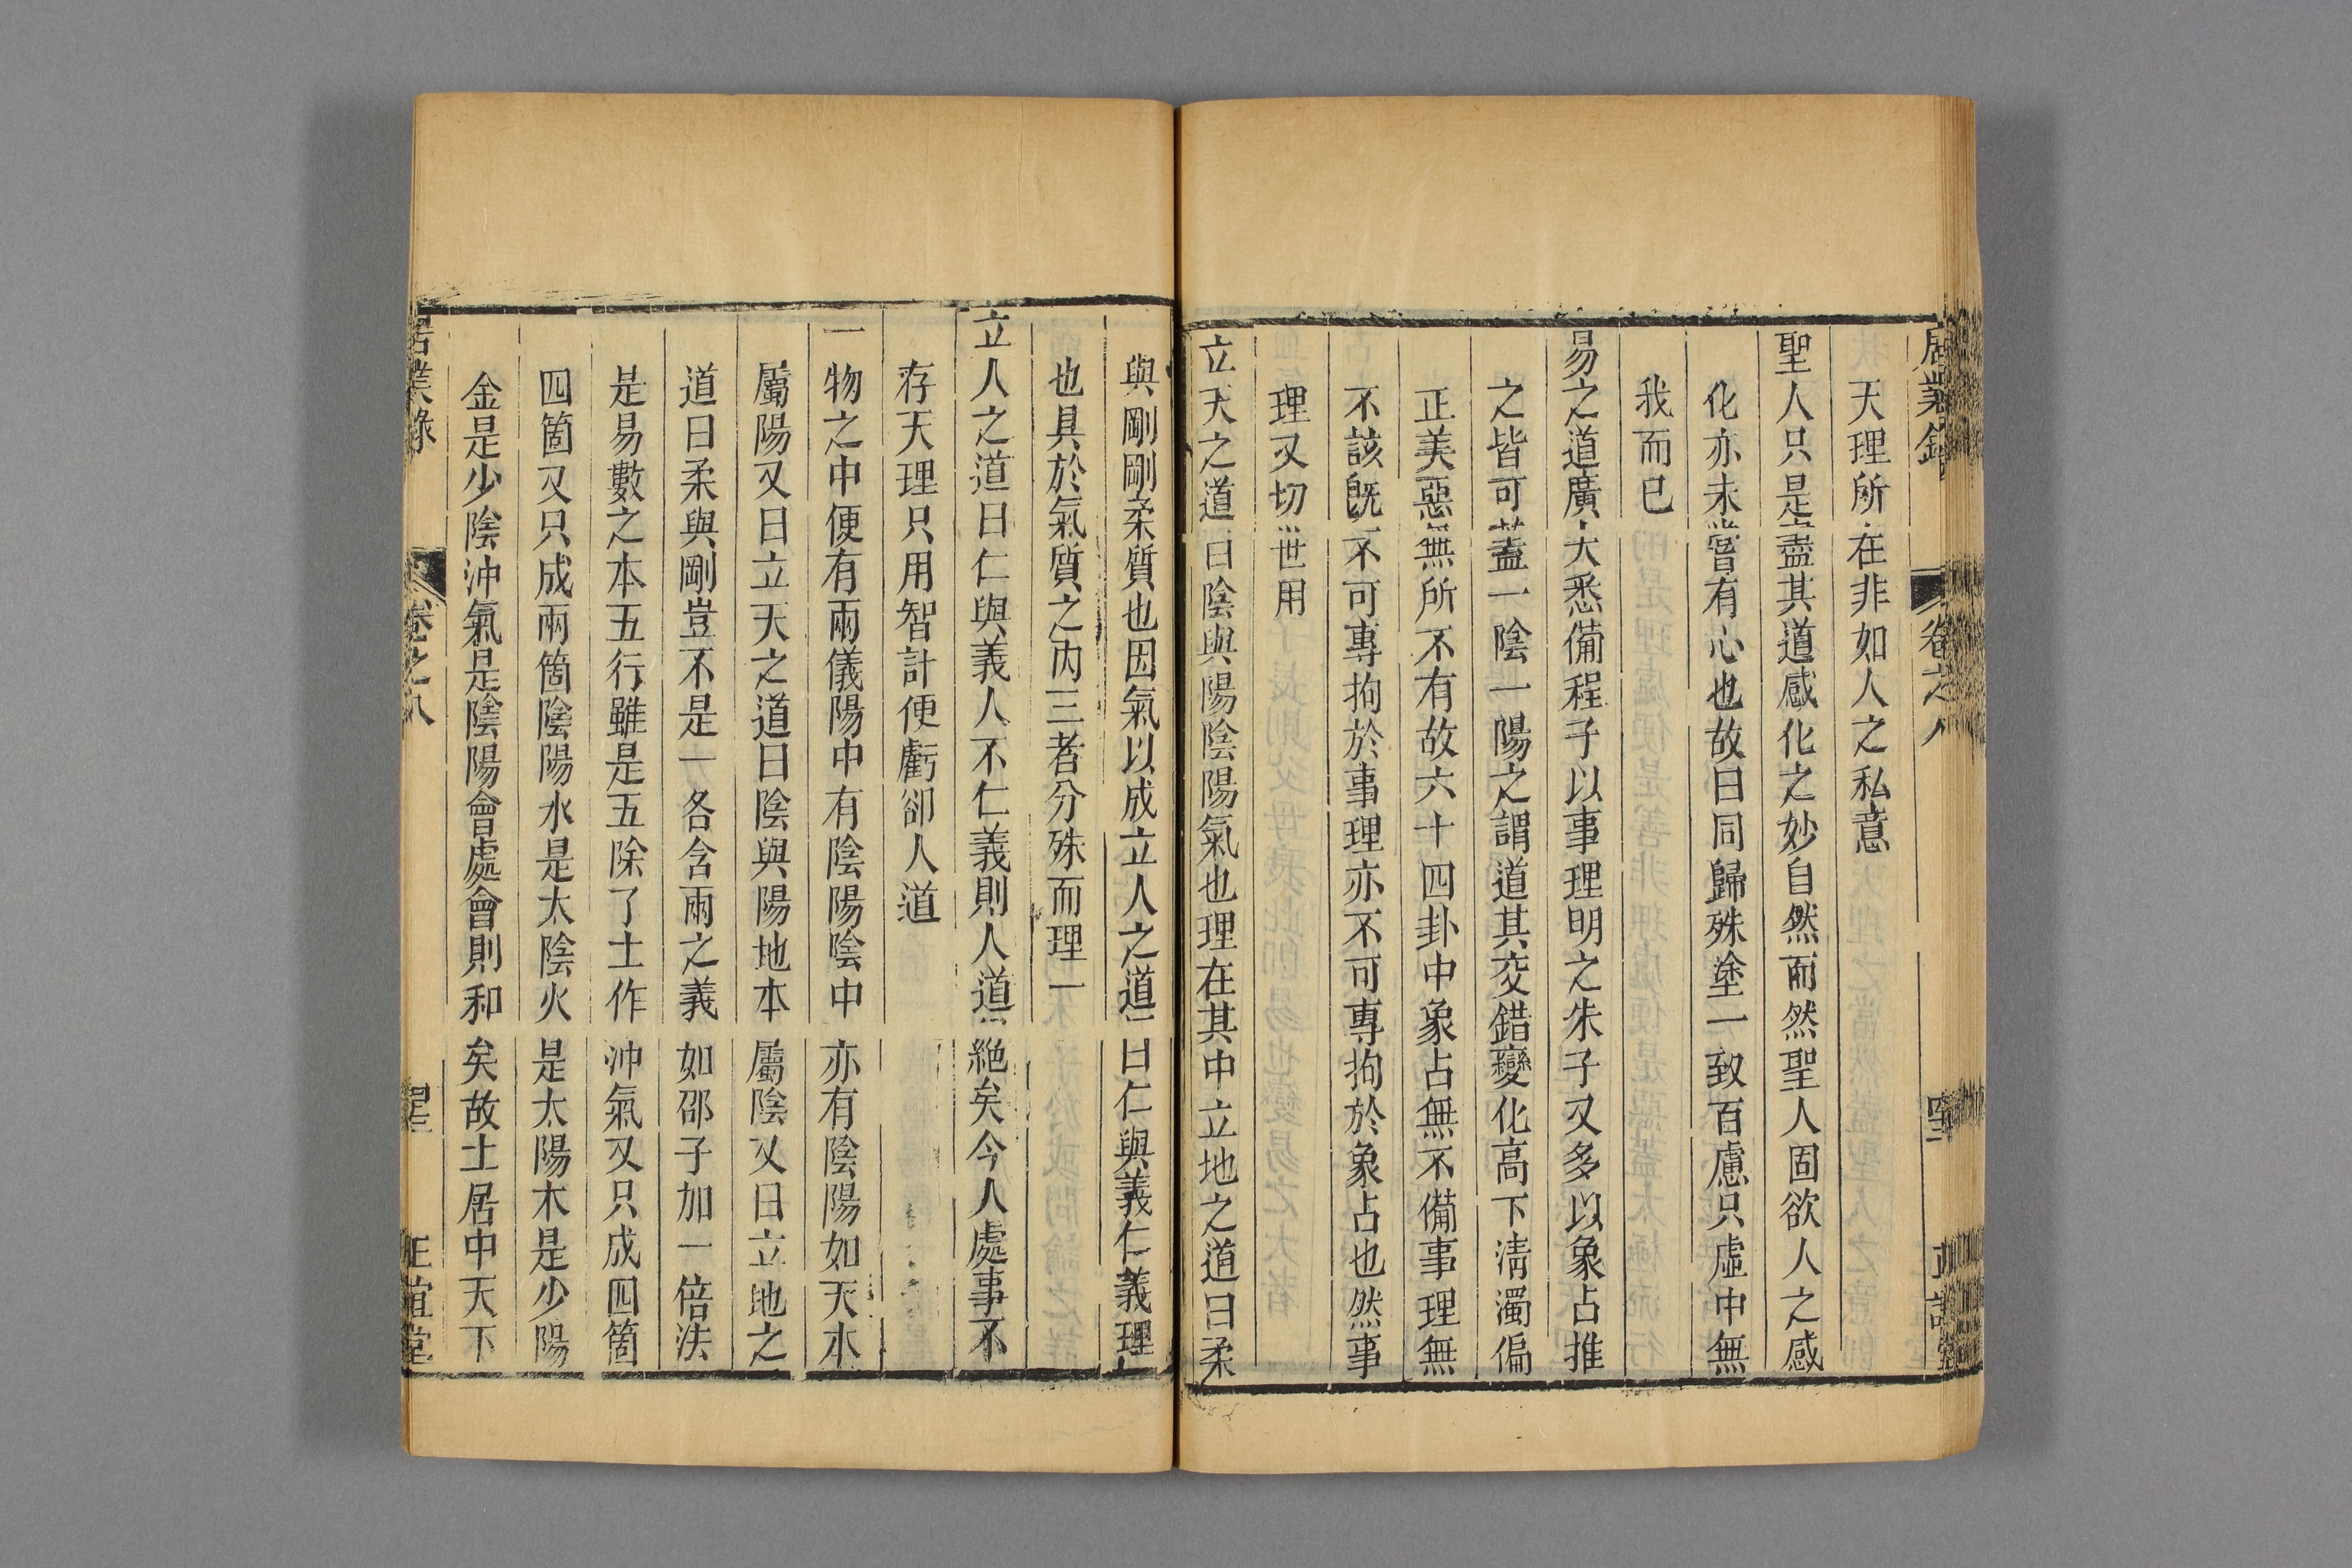 居業錄 卷之八
天理所在非如人之私意
聖人只是盡其道感化之妙自然而然聖人固欲人之感
化亦未嘗有心也故曰同歸殊塗一致百慮只虛中無
我而已
易之道廣大悉備程子以事理明之朱子又多以象占推
之皆可蓋一陰一陽之謂道其交錯變化高下淸濁偏
正美惡無所不有故六十四卦中象占無不備事理無
不該旣不可專拘於事理亦不可專拘於象占也然事
理又切世用
立天之道曰陰與陽陰陽氣也理在其中立地之道曰柔
與剛剛柔質也因氣以成立人之道曰仁與義仁義理
也具於氣質之內三者分殊而理一
立人之道曰仁與義人不仁義則人道絕矣今人處事不
存天理只用智計便虧卻人道
一物之中便有兩儀陽中有陰陽陰中亦有陰陽如天本
屬陽又曰立天之道曰陰與陽地本屬陰又曰立地之
道曰柔與剛豈不是一各含兩之義如邵子加一倍法
是易數之本五行雖是五除了土作沖氣又只成四箇
四箇又只成兩箇陰陽水是太陰火是太陽木是少陽
金是少陰沖氣是陰陽會處會則和矣故土居中天下
居業錄 卷之八 正誼堂